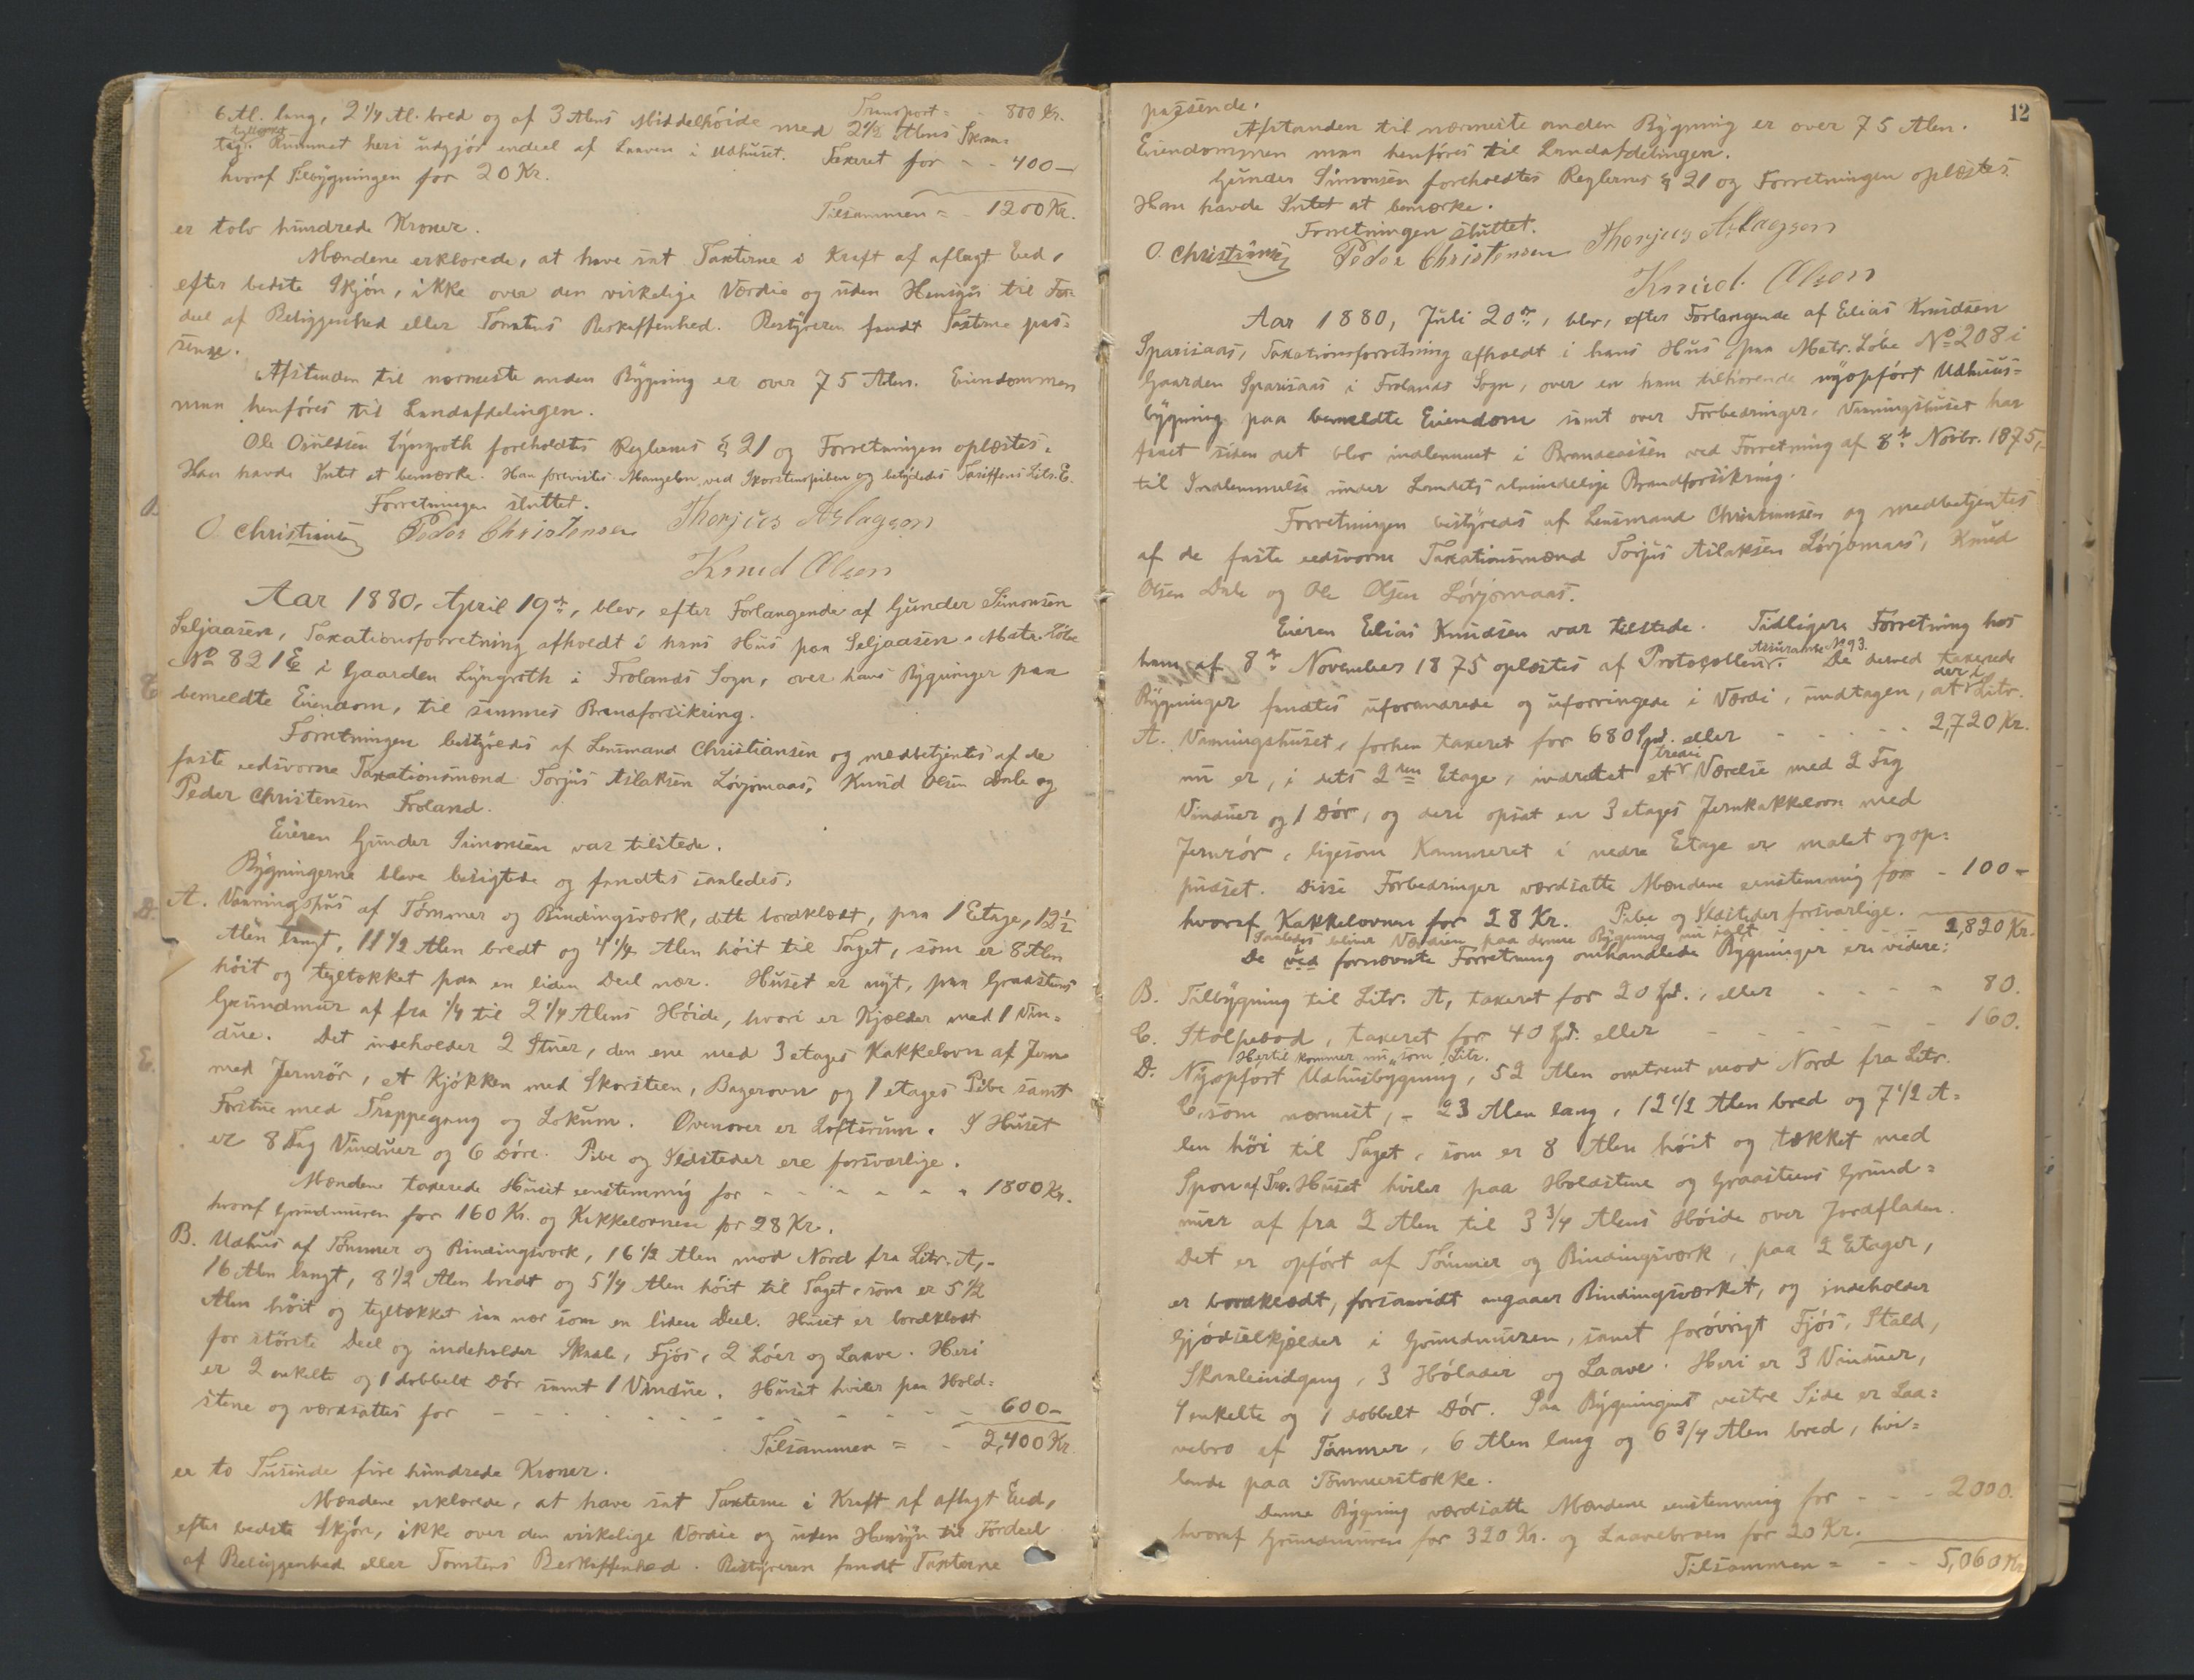 Transport = - 800 Kr.
6 Al. lang, 2 1/4 Al. bred og af 3 Alens Middelhöide med 2 1/2 Alens Skraa-
tag. Rummet heri udgjör endeel af Laaven i Udhuset. Taxeret for - - 400 -
hvoraf Tilbygningen for 20 Kr.
Tilsammen = - 1200 Kr.
er tolv hundrede Kroner.
Mændene erklærede, at have sat Taxterne i Kraft af aflagt Eed,
efter bedste Skjön, ikke over den virkelige Værdie og uden Hensyn til For-
deel af Beliggenhed eller Tomtens Beskaffenhed. Bestyreren fandt Taxterne pas-
sende.
Afstanden til nærmeste anden Bygning er over 75 Alen. Eiendommen
maa henföres til Landafdelingen.
Ole Osuldsen Lyngroth foreholdtes Reglernes § 21 og Forretningen oplæstes.
Han havde Intet at bemærke. Han forevistes Mangelen ved Skorstenspiben og betydedes Tariffens Litr. E.
Forretningen sluttet.
O. Christiansen Peder Christensen Thorjus Aslagson
Knud Olsen
Aar 1880, April 19de, blev, efter Forlangende af Gunder Simonsen
Seljaasen, Taxationsforretning afholdt i hans Hus paa Seljaasen, Matr. Löbe
No 821 E i Gaarden Lyngroth i Frolands Sogn, over hans Bygninger paa
bemeldte Eiendom, til sammes Brandforsikring.
Forretningen bestyredes af Lensmand Christiansen og medbetjentes af de
faste eedsvorne Taxationsmænd Torjus Aslaksen Lövjomaas, Knud Olsen Dale og
Peder Christensen Froland.
Eieren Gunder Simonsen var tilstede.
Bygningerne bleve besigtede og fandtes saaledes:
A. Vaaningshus af Tömmer og Bindingsværk, dette bordklædt, paa 1 Etage, 12 1/2
Alen langt, 11 1/2 Alen bredt og 4 1/4 Alen höit til Taget, som er 8 Alen
höit og tegltækket paa en liden Deel nær. Huset er nyt, paa Graasteens
Grundmur af fra 1/4 til 2 1/4 Alens Höide, hvori er Kjælder med 1 Vin-
due. Det indeholder 2 Stuer, den ene med 3 etages Kakkelovn af Jern
med Jernrör, et Kjökken med Skorsteen, Bagerovn og 1 etages Pibe samt
Forstue med Trappegang og Lokum. Ovenover er Loftsrum. I Huset
er 8 Fag Vinduer og 6 Döre. Pibe og Ildsteder ere forsvarlige.
Mændene taxerede Huset eenstemmig for - - - - - - 1800 Kr.
hvoraf Grundmuren for 160 Kr. og Kakkelovnen for 28 Kr.
B. Udhus af Tömmer og Bindingsværk, 16 1/2 Alen mod Nord fra Litr. A, -
16 Alen langt, 8 1/2 Alen bredt og 5 1/4 Alen höit til Taget, som er 5 1/2
Alen höit og tegltækket saa nær som en liden Deel. Huset er bordklædt
for störste Deel og indeholder Skaale, Fjös, 2 Löer og Laave. Heri
er 2 enkelte og 1 dobbelt Dör samt 1 Vindue. Huset hviler paa Hold-
stene og værdsattes for - - - - - - - 600 -
Tilsammen = - 2,400 Kr.
er to Tusinde fire hundrede Kroner.
Mændene erklærede, at have sat Taxterne i Kraft af aflagt Eed,
efter bedste Skjön, ikke over den virkelige Værdie og uden Hensyn til Fordeel
af Beliggenhed eller Tomtens Beskaffenhed. Bestyreren fandt Taxterne
12
passende.
Afstanden til nærmeste anden Bygning er over 75 Alen.
Eiendommen maa henföres til Landafdelingen.
Gunder Simonsen foreholdtes Reglernes § 21 og Forretningen oplæstes.
Han havde Intet at bemærke.
Forretningen sluttet.
O. Christiansen Peder Christensen Thorjus Aslagson
Knud Olsen
Aar 1880, Juli 20de, blev, efter Forlangende af Elias Knudsen
Sparsaas, Taxationsforretning afholdt i hans Hus paa Matr. Löbe No 208 i
Gaarden Sparsaas i Frolands Sogn, over en ham tilhörende nyopfört Udhuus-
bygning paa bemeldte Eiendom samt over Forbedringer, Vaaningshuset har
faaet siden det blev indlemmet i Brandcassen ved Forretning af 8de Novbr. 1875, -
til Indlemmelse under Landets almindelige Brandforsikring.
Forretningen bestyredes af Lensmand Christiansen og medbetjentes
af de faste eedsvorne Taxationsmænd Torjus Aslaksen Lövjomaas, Knud
Olsen Dale og Ole Olsen Lövjomaas.
Eieren Elias Knudsen var tilstede. Tidligere Forretning hos
ham af 8de November 1875 oplæstes af Protocollen. Assurance No 93. De derved taxerede
Bygninger fandtes uforandrede og uforringede i Værdi, undtagen, at der i Litr.
A. Vaaningshuset, forhen taxeret for 680 Spd. eller - - - - - 2,720 Kr.
nu er, i dets 2den Etage, indrettet et tredie Værelse med 2 Fag
Vinduer og 1 Dör, og deri opsat en 3 etages Jernkakkelovn med
Jernrör, ligesom Kammeret i nedre Etage er malet og op-
pudset. Disse Forbedringer værdsatte Mændene eenstemmig for - 100 -
hvoraf Kakkelovnen for 28 Kr. Pibe og Ildsteder forsvarlige.
Saaledes bliver Værdien paa denne Bygning nu ialt - - - - 2,820 Kr.
De ved fornævnte Forretning omhandlede Bygninger er videre:
B. Tilbygning til Litr. A, taxeret for 20 Spd., eller - - - - 80.
C. Stolpebod, taxeret for 40 Spd. eller - - - - - - 160.
Hertil kommer nu, som Litr.
D. Nyopfört Udhusbygning, 52 Alen omtrent mod Nord fra Litr.
C, som nærmest, - 23 Alen lang, 12 1/2 Alen bred og 7 1/2 A-
len höi til Taget, som er 8 Alen höit og tækket med
Spon af Træ. Huset hviler paa Holdstene og Graasteens Grund-
mur af fra 2 Alen til 3 3/4 Alens Höide over Jordfladen.
Det er opfört af Tömmer og Bindingsværk, paa 2 Etager,
er bordklædt, forsaavidt angaaer Bindingsværket, og indeholder
Gjödselkjælder i Grundmuren, samt forövrigt Fjös, Stald,
Skaaleindgang, 3 Hölader og Laave. Heri er 3 Vinduer,
4 enkelte og 1 dobbelt Dör. Paa Bygningens vestre Side er Laa-
vebro af Tömmer, 6 Alen lang og 6 3/4 Alen bred, hvi-
lende paa Tömmerstokke.
Denne Bygning værdsatte Mændene eenstemmig for - - - 2000.
hvoraf Grundmuren for 320 Kr. og Laavebroen for 20 Kr.
Tilsammen = - - 5,060 Kr.